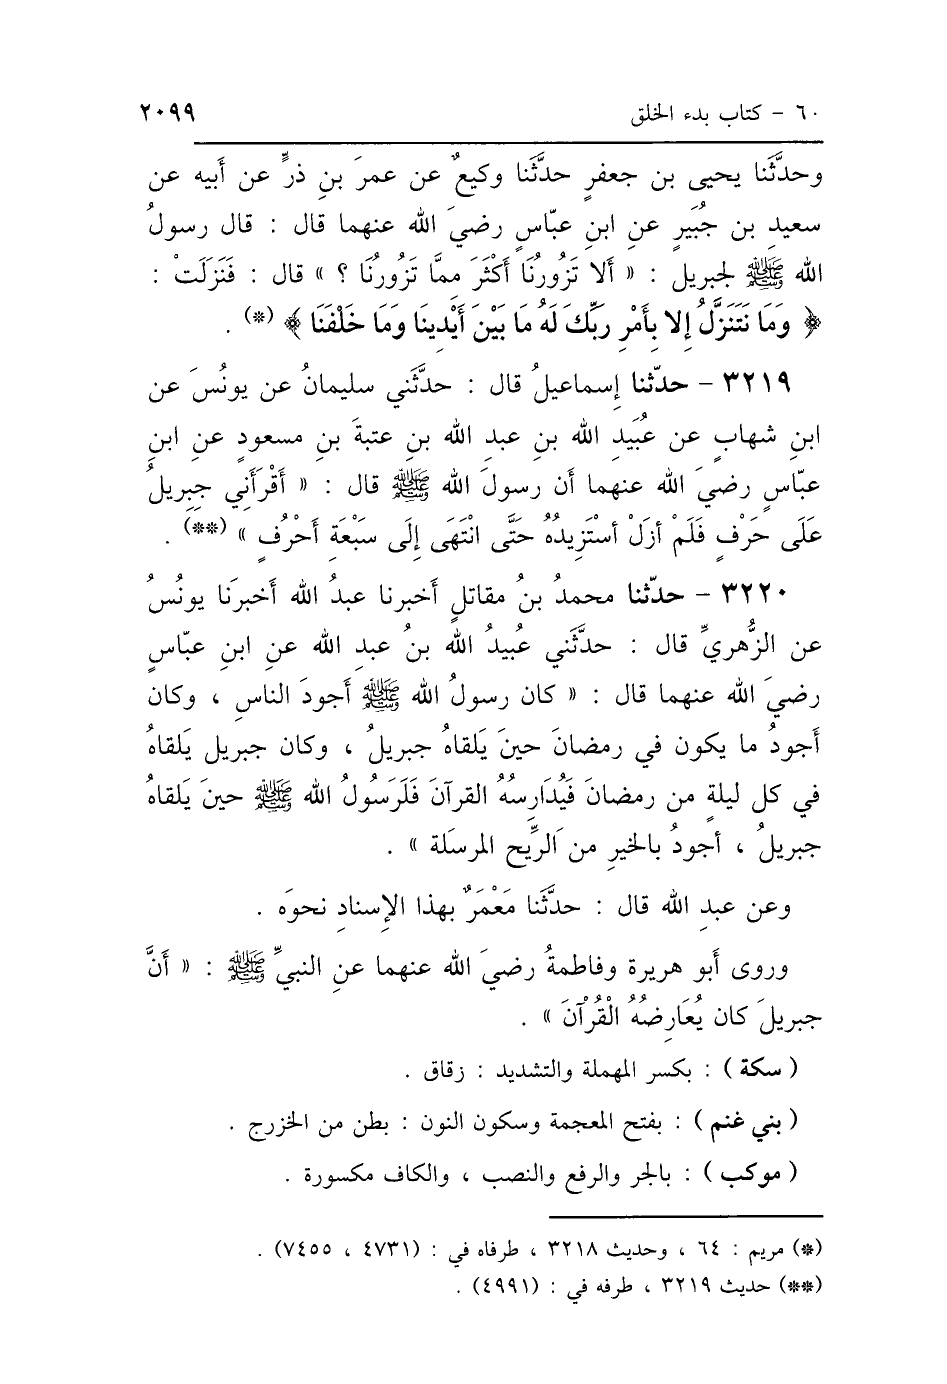 ٦٠ – كتاب بدء الخلق ٢٠٩٩
وحدَّثَنا يحيى بن جعفرٍ حدَّثَنا وكيعٌ عن عمرَ بنِ ذرٍّ عن أَبيه عن
سعيدِ بن جُبَيرٍ عنِ ابنِ عبّاسٍ رضيَ الله عنهما قال : قال رسولُ
الله ﷺ لجبريل : « أَلا تَزُورُنَا أَكْثَرَ مِمَّا تَزُورُنَا ؟ » قال : فَنَزَلَتْ :
﴿ وَمَا نَتَنَزَّلُ إِلا بِأَمْرِ رَبِّكَ لَهُ مَا بَيْنَ أَيْدِينَا وَمَا خَلْفَنَا ﴾ (*) .
٣٢١٩ – حدّثنا إسماعيلُ قال : حدَّثَني سليمانُ عن يونُسَ عن
ابنِ شهابٍ عن عُبَيدِ الله بنِ عبدِ الله بنِ عتبةَ بنِ مسعودٍ عنِ ابنِ
عبّاسٍ رضيَ الله عنهما أن رسولَ الله ﷺ قال : « أَقْرَأَنِي جِبرِيلُ
عَلَى حَرْفٍ فَلَمْ أزلْ أستَزِيدُهُ حَتَّى انْتَهَى إِلَى سَبْعَةِ أَحْرُفٍ » (**) .
٣٢٢٠ – حدّثنا محمدُ بنُ مقاتلٍ أخبرنا عبدُ الله أخبرنَا يونُسُ
عن الزُّهريِّ قال : حدَّثَني عُبيدُ الله بنُ عبدِ الله عنِ ابنِ عبّاسٍ
رضيَ الله عنهما قال : « كان رسولُ الله ﷺ أجودَ الناسِ ، وكان
أجودُ ما يكون في رمضانَ حينَ يَلقاهُ جبريلُ ، وكان جبريل يَلقاهُ
في كل ليلةٍ من رمضانَ فَيُدَارِسهُ القرآنَ فَلَرَسُولُ الله ﷺ حينَ يَلقاهُ
جبريلُ ، أجودُ بالخيرِ من الرِّيح المرسَلة » .
وعن عبدِ الله قال : حدَّثَنا مَعْمَرٌ بهذا الإِسنادِ نحوَه .
وروى أَبو هريرة وفاطمةُ رضيَ الله عنهما عنِ النبيِّ ﷺ : « أَنَّ
جبريلَ كان يُعَارِضُهُ الْقُرْآنَ » .
( سكة ) : بكسر المهملة والتشديد : زقاق .
( بني غنم ) : بفتح المعجمة وسكون النون : بطن من الخزرج .
( موكب ) : بالجر والرفع والنصب ، والكاف مكسورة .
(*) مريم : ٦٤ ، وحديث ٣٢١٨ ، طرفاه في : (٤٧٣١ ، ٧٤٥٥) .
(**) حديث ٣٢١٩ ، طرفه في : (٤٩٩١) .